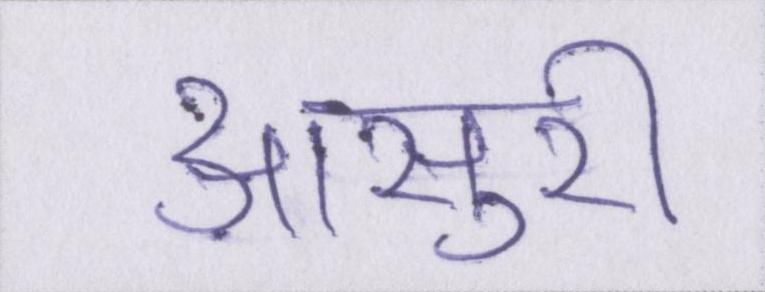 आसुरी